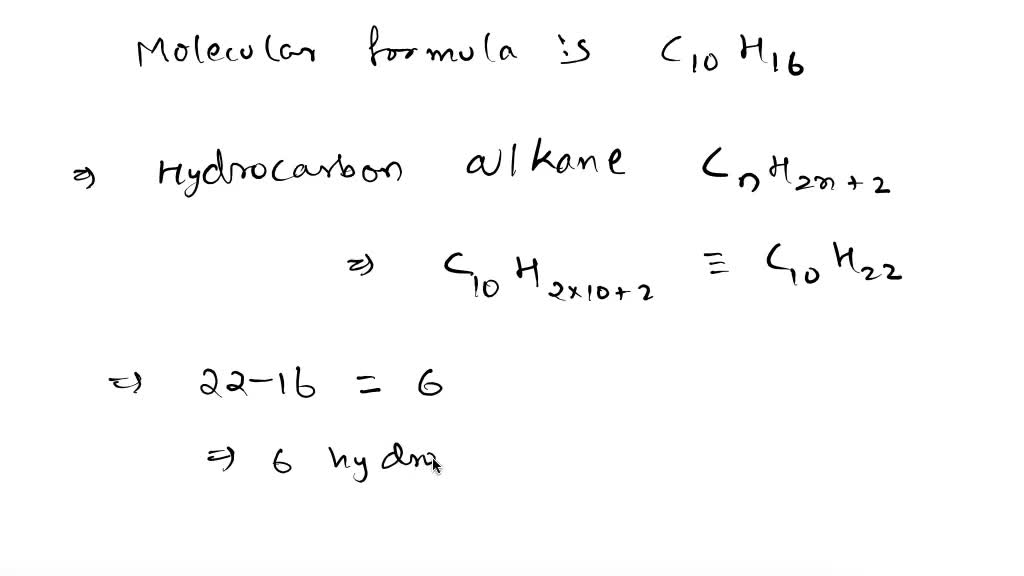 Molecular formula is C10 H16
⇒ Hydrocarbon alkane CnH2n+2
⇒ C10 H2×10+2 ≡ C10 H22
⇒ 22-16 = 6
⇒ 6 hydro